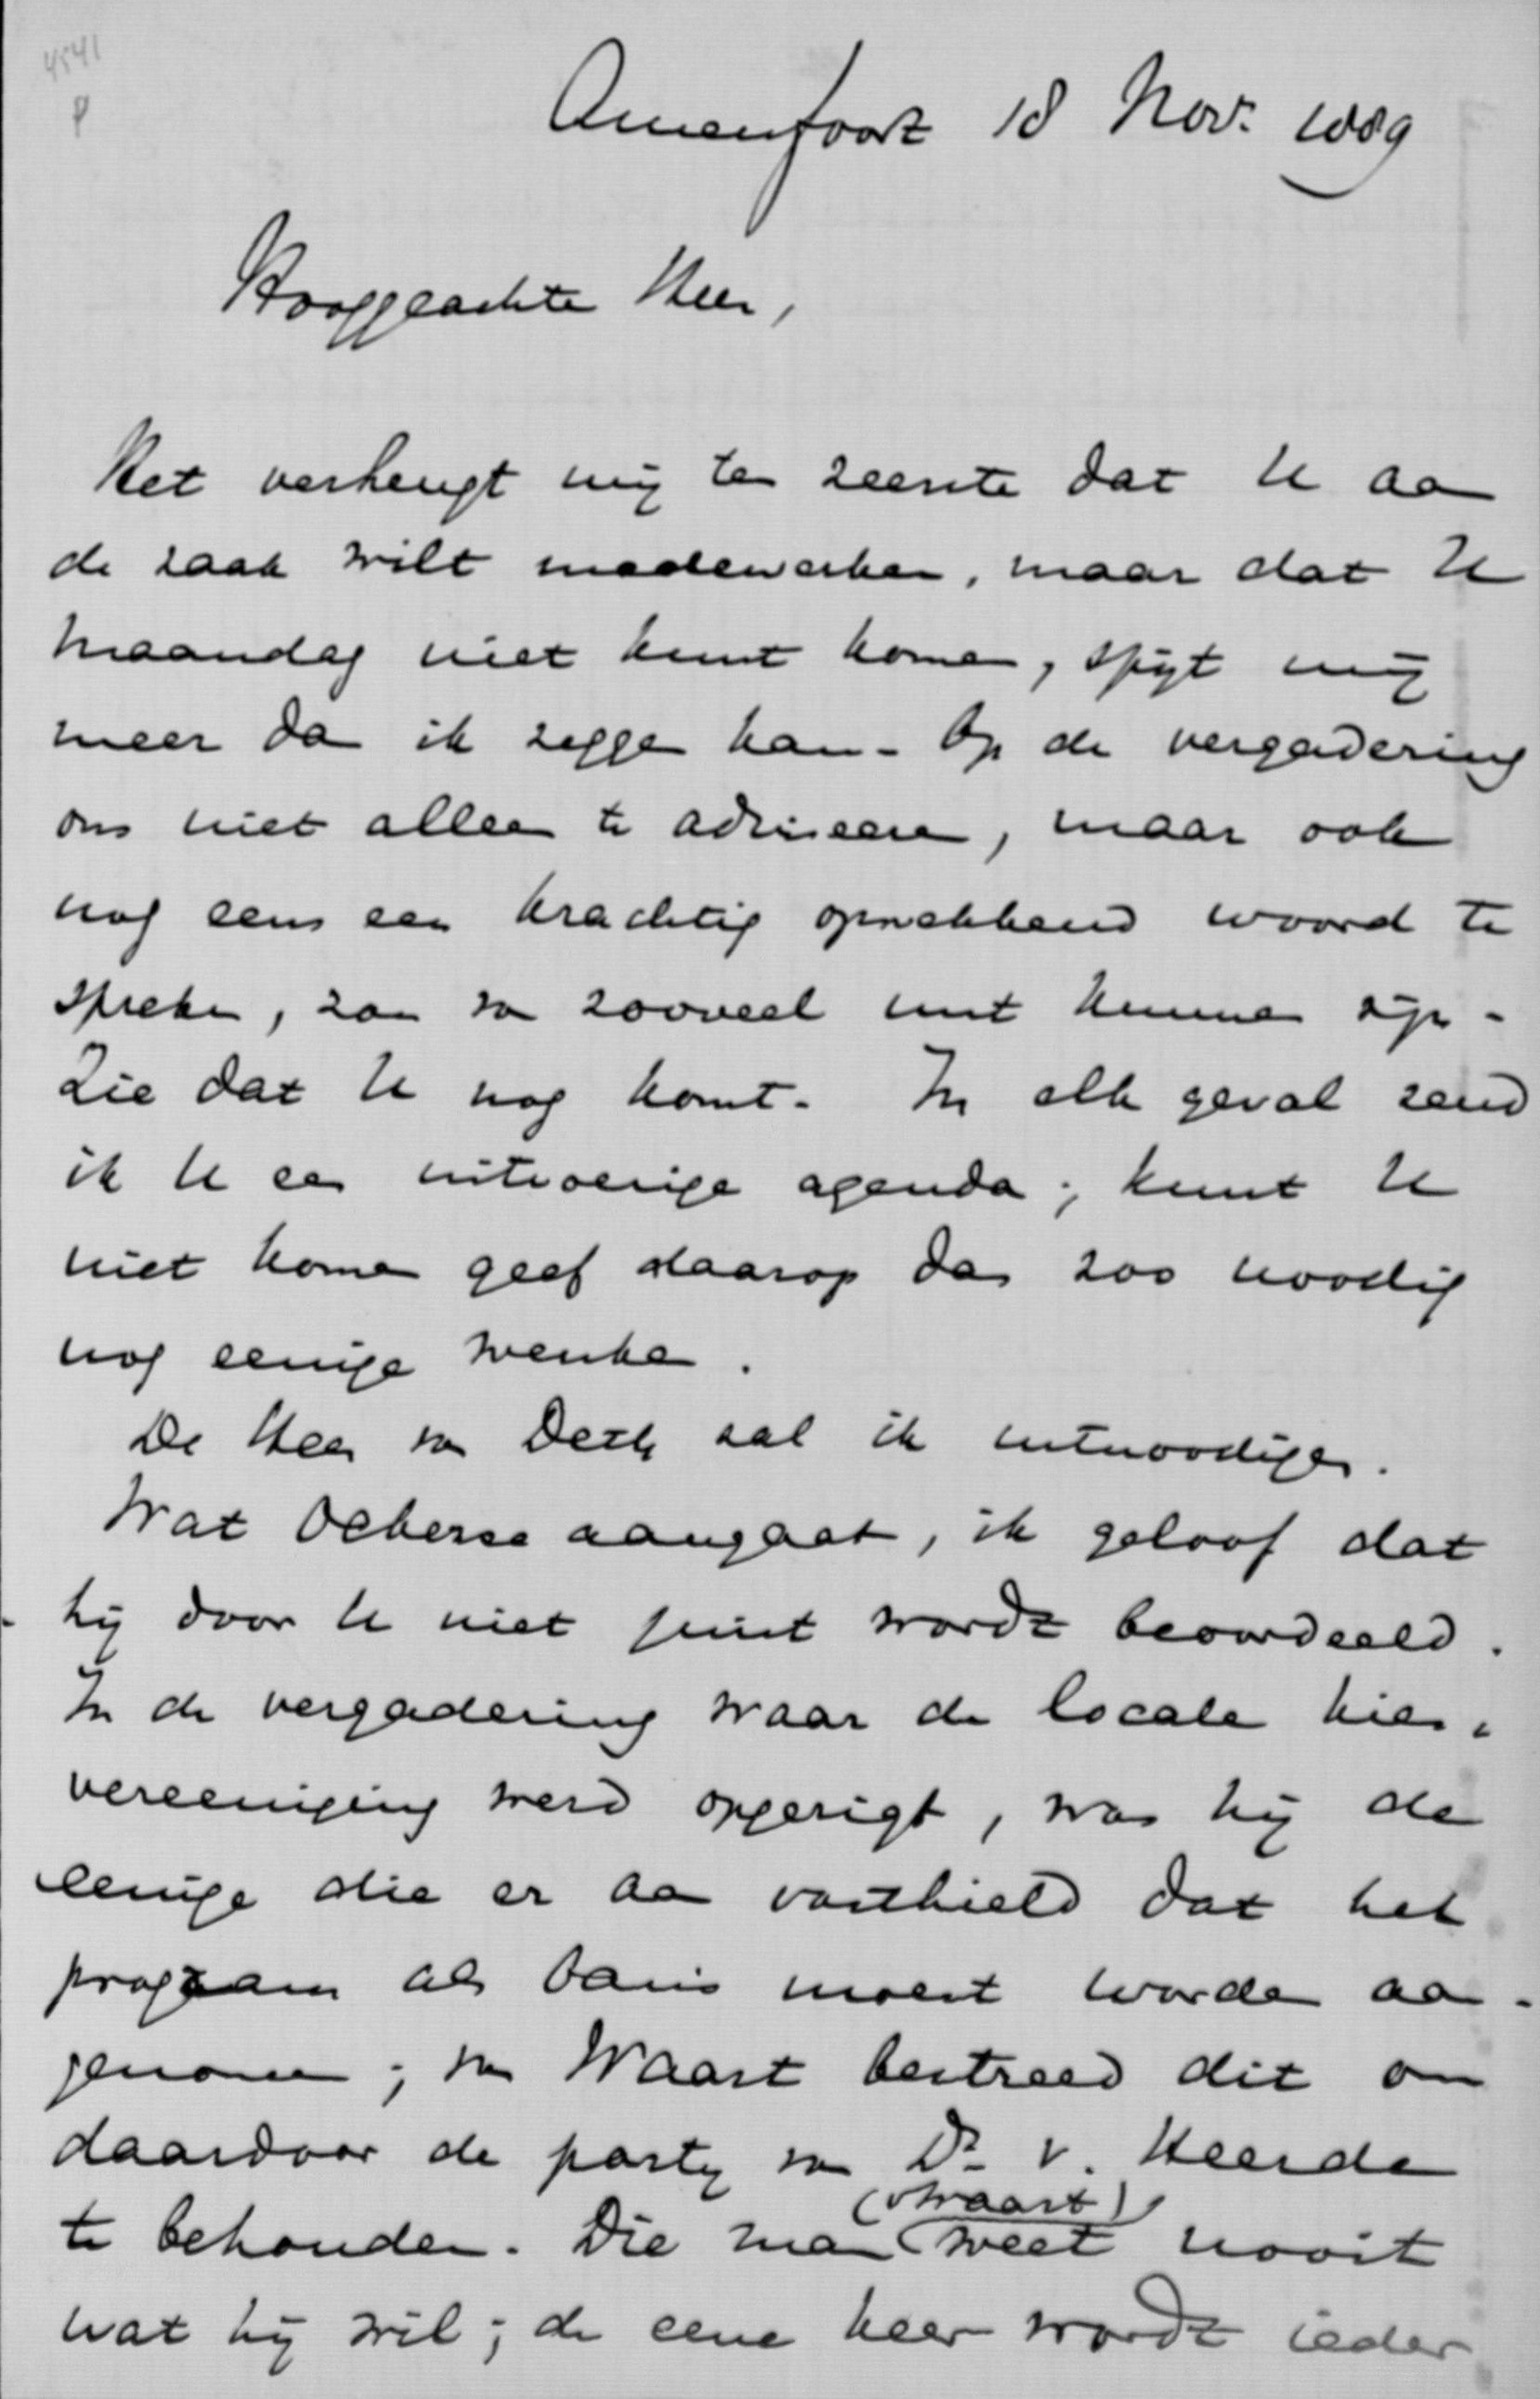 4541
P
Amersfoort 18 Nov. 1889
Hooggeachte Heer,
Het verheugt mij ten zeerste dat U aan
de zaak wilt medewerken, maar dat U
Maandag niet kunt komen, spijt mij
meer dan ik zeggen kan. Op de vergadering
ons niet alleen te adviseeren, maar ook
nog eens een krachtig opwekkend woord te
spreken, zou van zooveel nut kunnen zijn.
Zie dat U nog komt. In elk geval zend
ik U een uitvoerige agenda; kunt U
niet komen geef daarop dan zoo noodig
nog eenige wenken.
De Heer van Deth zal ik uitnoodigen.
Wat Ockerse aangaat, ik geloof dat
hij door U niet juist wordt beoordeeld.
In de vergadering waar de locale kies-
vereeniging werd opgerigt, was hij de
eenige die er aan vasthield dat het
program als basis moest worden aan-
genomen; van Waart bestreed dit om
daardoor de party van Dr. v. Heerde
(v Waart)
te behouden. Die man weet nooit
wat hij wil; de eene keer wordt ieder